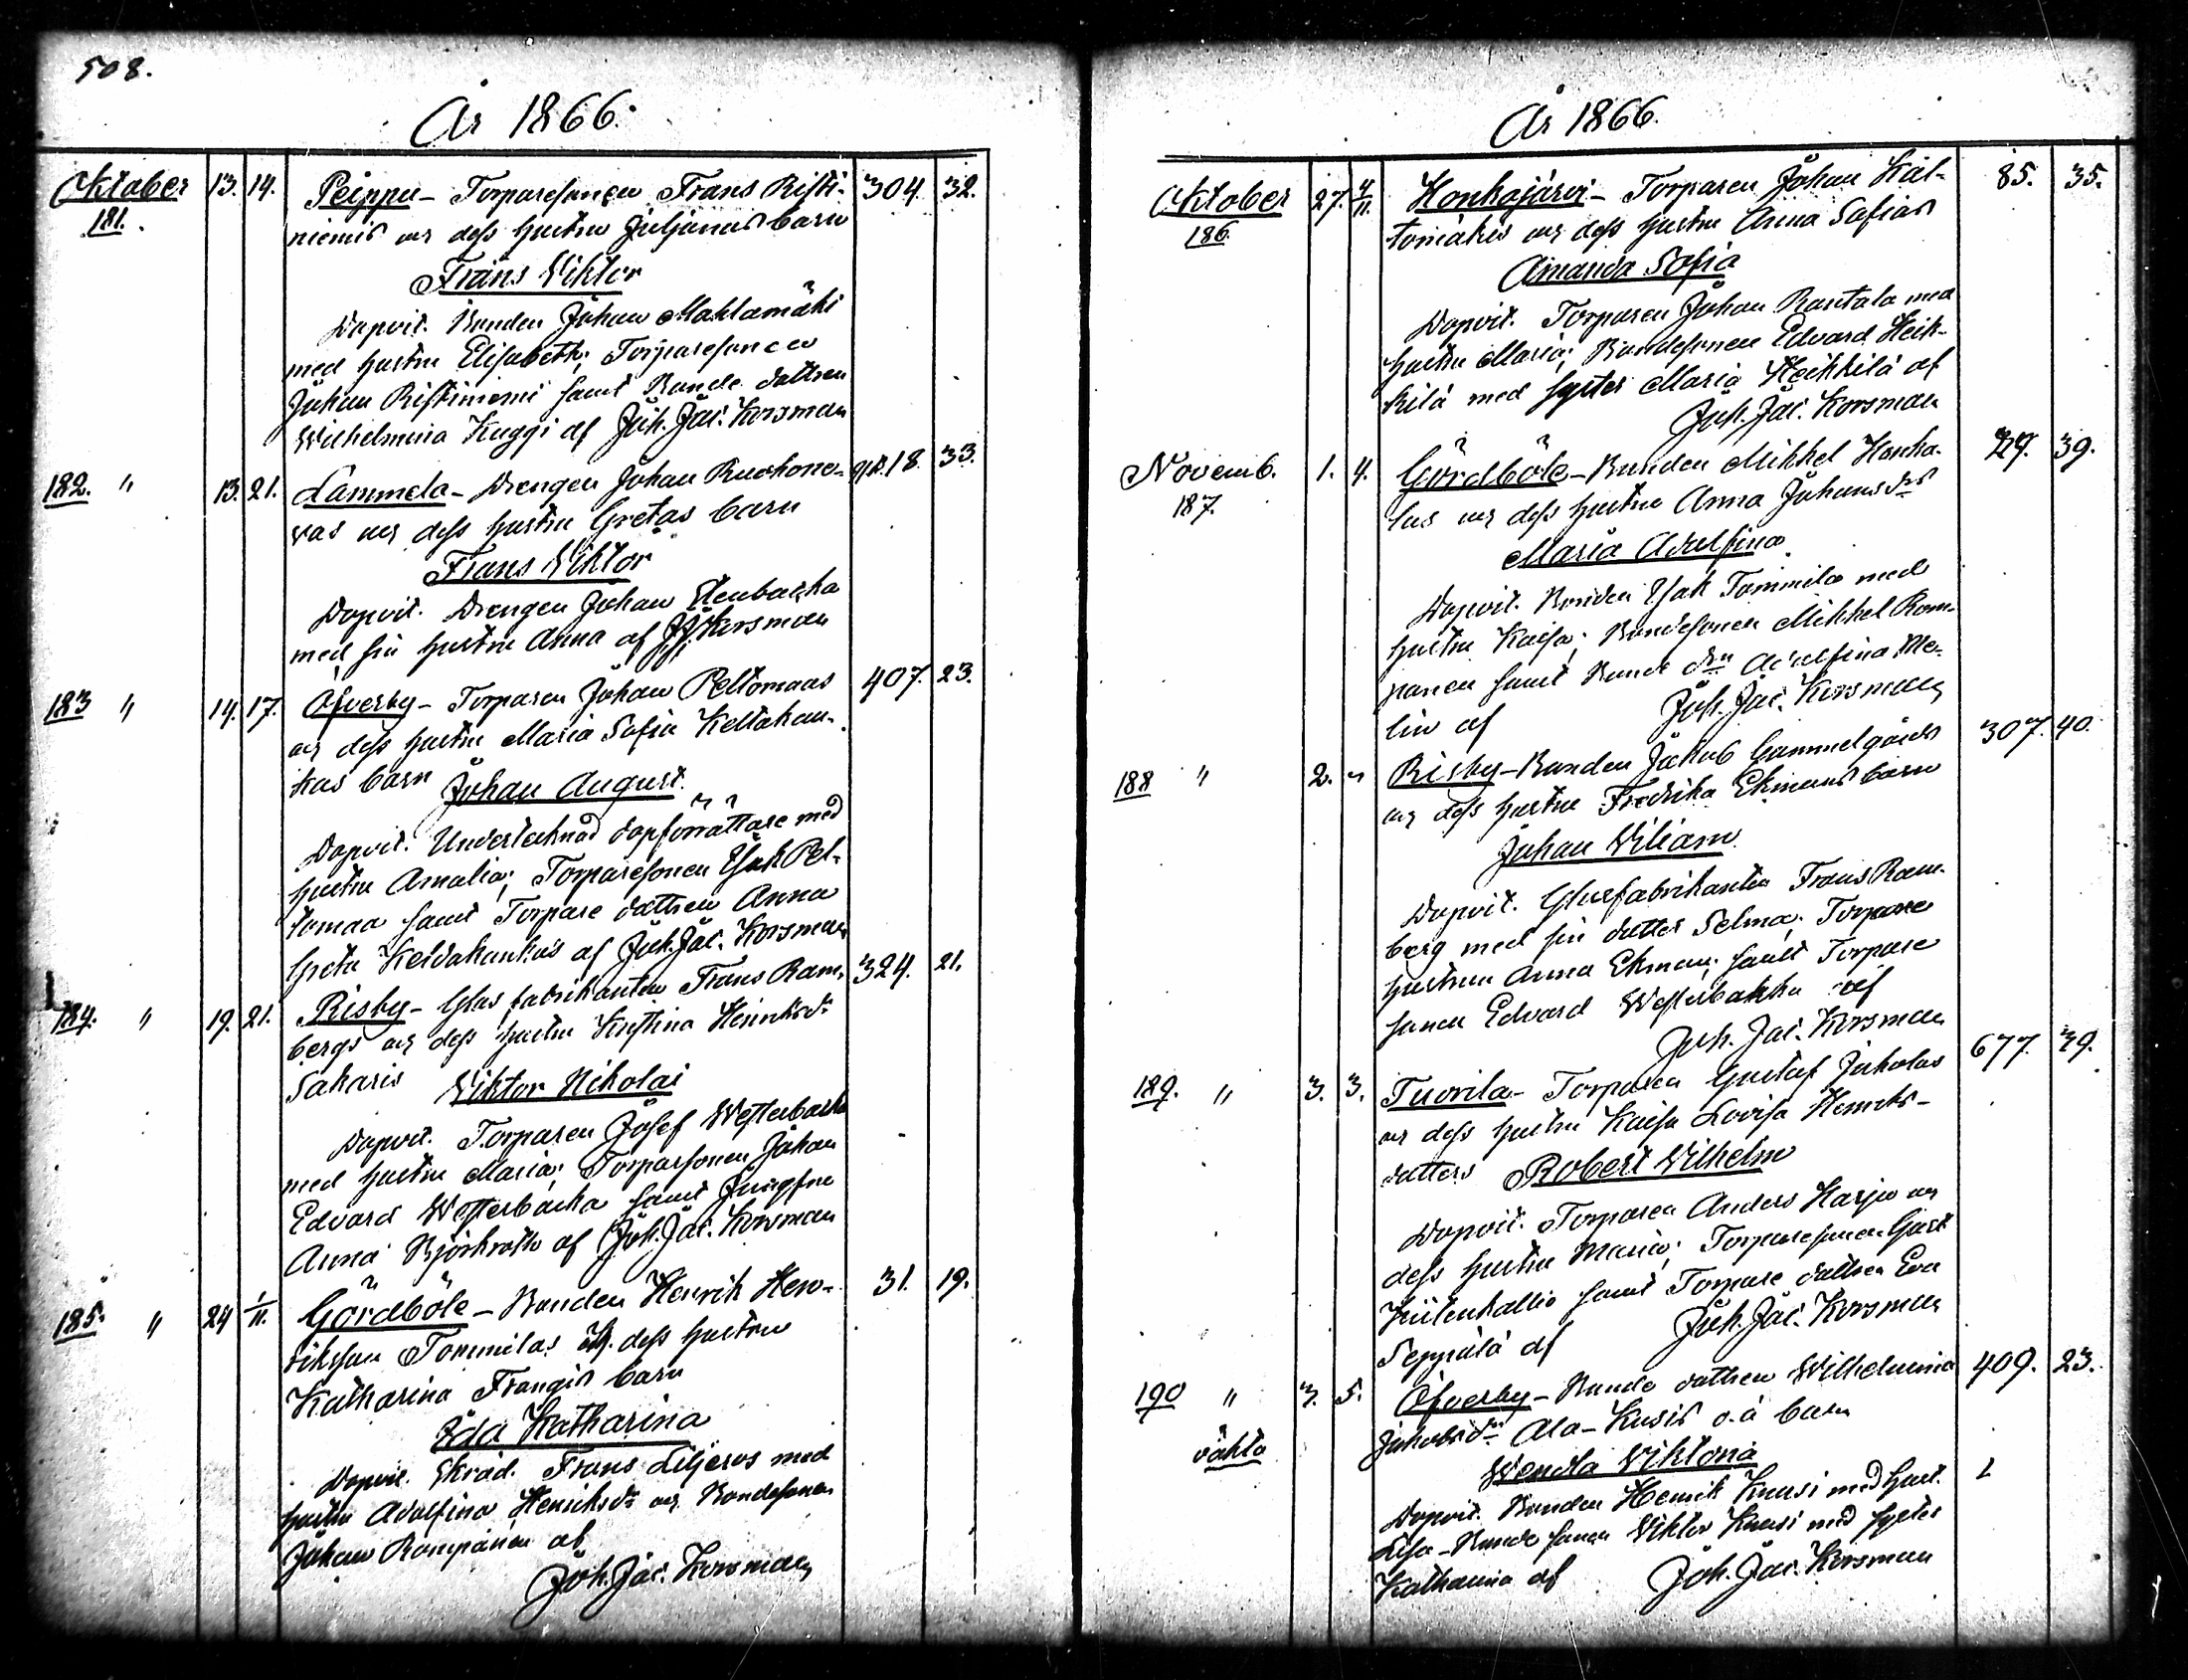 508.
År 1866.
Oktober 13. 14. Peippu - Torparesonen Frans Risti- 304. 32.
181. niemis och dess hustru Juljanas barn
Frans Viktor
Dopvit. Bonden Johan Mahlamäki
med hustru Elisabeth; Torparesonen
Johan Ristiniemi samt Bonde dottren
Wilhelmina Kuggi af Joh. Jac. Korsman
182. " 13. 21. Lammela - Drengen Johan Ruohone- 18. 33.
vas och dess hustru Gretas barn
Frans Viktor
Dopvit. Drengen Johan Stenbacka
med sin hustru Anna af J. J. Korsman
183 " 14. 17. Öfverby - Torparen Johan Peltomaas 407. 23.
och dess hustru Maria Sofia Keltakan-
kas barn Johan August.
Dopvit. Undertecknad dopförrättare med
hustru Amalia; Torparesonen Isak Pel-
tomaa samt Torpare dottren Anna
Greta Keldakankas af Joh. Jac. Korsman
184. " 19. 21. Risby - Glasfabrikanten Frans Ram- 324. 21.
bergs och dess hustru Kristina Henriksdr
Sakaris Viktor Nikolai
Dopvit. Torparen Josef Westerbacka
med hustru Maria; Torparsonen Johan
Edvard Westerbacka samt Jungfru
Anna Björkroth af Joh. Jac. Korsman
185. " 24 1/11. Gördböle - Bonden Henrik Hen- 31. 19.
riksson Tommilas och dess hustru
Katharina Frangis barn
Eda Katharina
Dopvit. Skräd. Frans Liljeros med
hustru Adolfina Henriksdr och Bondesonen
Johan Rompanen af
Joh. Jac. Korsman
År 1866.
Oktober 27. 4/11. Honkajärvi - Torparen Johan Kal- 85. 35.
186. tomäkis och dess hustru Anna Sofias
Amanda Sofia
Dopvit. Torparen Johan Rantala med
hustru Maria; Bondesonen Edvard Heik-
kilä med syster Maria Heikkilä af
Joh. Jac. Korsman
Novemb. 1. 4. Gördböle - Bonden Mikkel Honka- 39.
187. las och dess hustru Anna Johansdrs
Maria Adolfina
Dopvit. Bonden Isak Tommila med
hustru Kaisa; Bondesonen Mikkel Rom-
panen samt Bonde drn Adolfina Me-
lin af Joh. Jac. Korsman
188 " 2. " Risby - Bonden Jakob Gammelgårds 307. 40.
och dess hustru Fredrika Ekmans barn
Johan Viliam
Dopvit. Glasfabrikanten Frans Ram-
berg med sin dotter Selma; Torpare
hustrun Anna Ekman; samt Torpare
sonen Edvard Westerbacka af
Joh. Jac. Korsman
189. " 3. 3. Tuorila - Torparen Gustaf Jakolas 677. 39.
och dess hustru Kaisa Lovisa Henriks-
dotters Robert Vilhelm
Dopvit. Torparen Anders Harju och
dess hustru Maria; Torparesonen Gust
samt Torpare dottren Eva
Seppälä af Joh. Jac. Korsman
190 " 3. 5. Öfverby - Bonde dottren Wilhelmina 409. 23.
oäkta Jakobsdr Ala-Kusis o.ä barn
Wendla Viktoria
Dopvit. Bonden Henrik Knusi med hust.
Lisa - Bonde sonen Viktor Knusi med syster
Katharina af Joh. Jac. Korsman